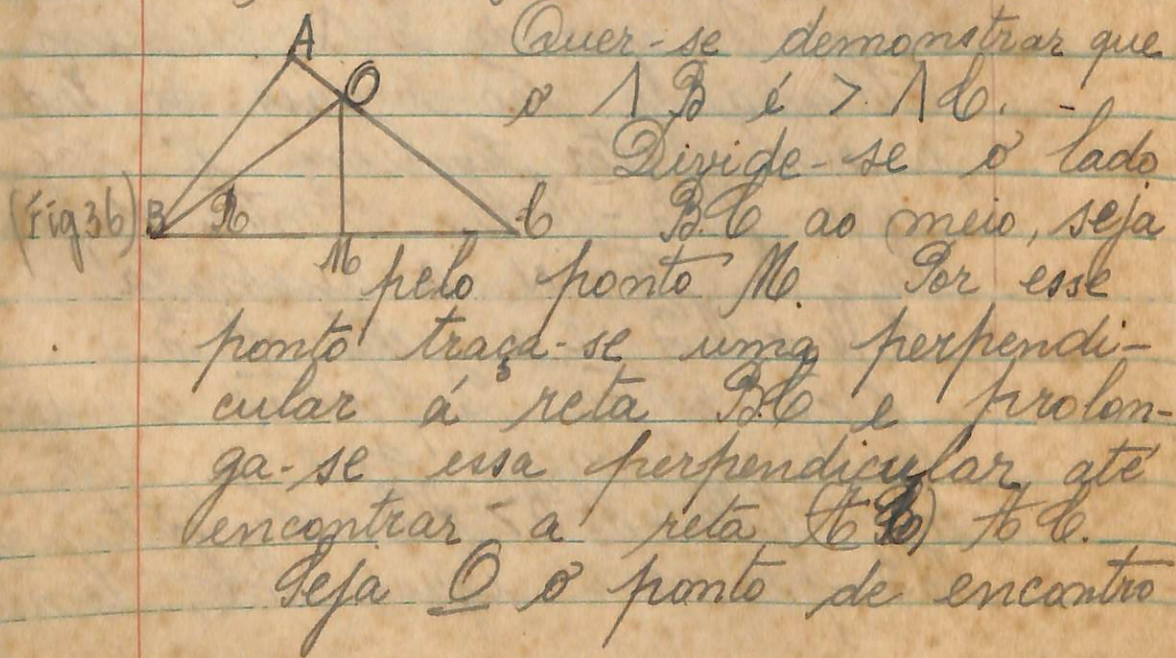 A
O
Quer-se demonstrar que
o ⋀ B é > ⋀ C.
Divide-se o lado
(Fig 36) B R C BC ao meio, seja
M pelo ponto M. Por esse
ponto traça-se uma perpendi-
cular á reta BC e prolon-
ga-se essa perpendicular até
encontrar a reta AC.
Seja O o ponto de encontro